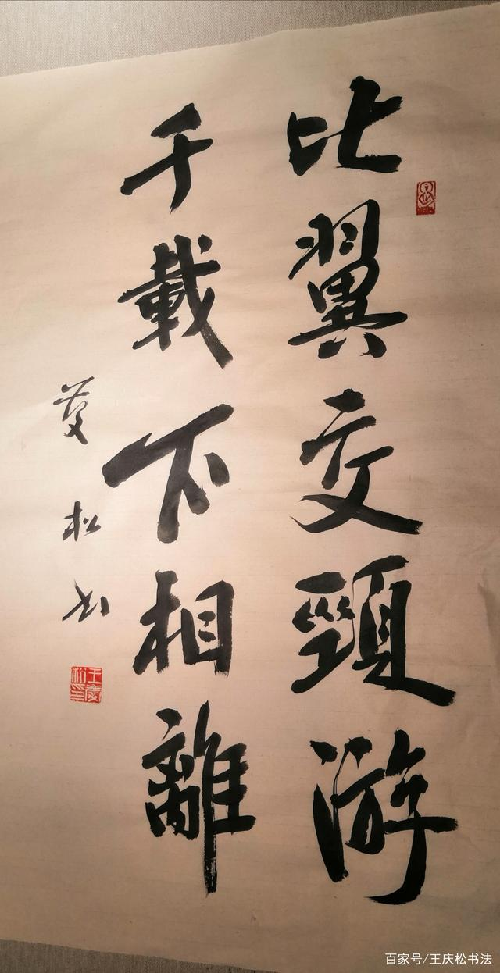 比翼交頸游
千載不相離
慶松书
百家号/王庆松书法